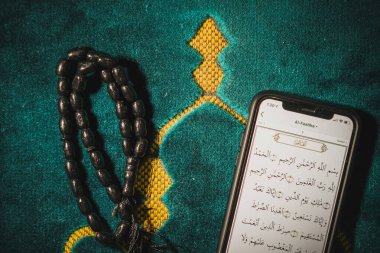 Al-Faatiha
بِسْمِ اللَّهِ الرَّحْمَٰنِ الرَّحِيمِ الْحَمْدُ
لِلَّهِ رَبِّ الْعَالَمِينَ الرَّحْمَٰنِ الرَّحِيمِ
مَالِكِ يَوْمِ الدِّينِ إِيَّاكَ نَعْبُدُ
وَإِيَّاكَ نَسْتَعِينُ اهْدِنَا الصِّرَاطَ
الْمُسْتَقِيمَ صِرَاطَ الَّذِينَ أَنْعَمْتَ
الْمَغْضُوبِ عَلَيْهِمْ وَلَا